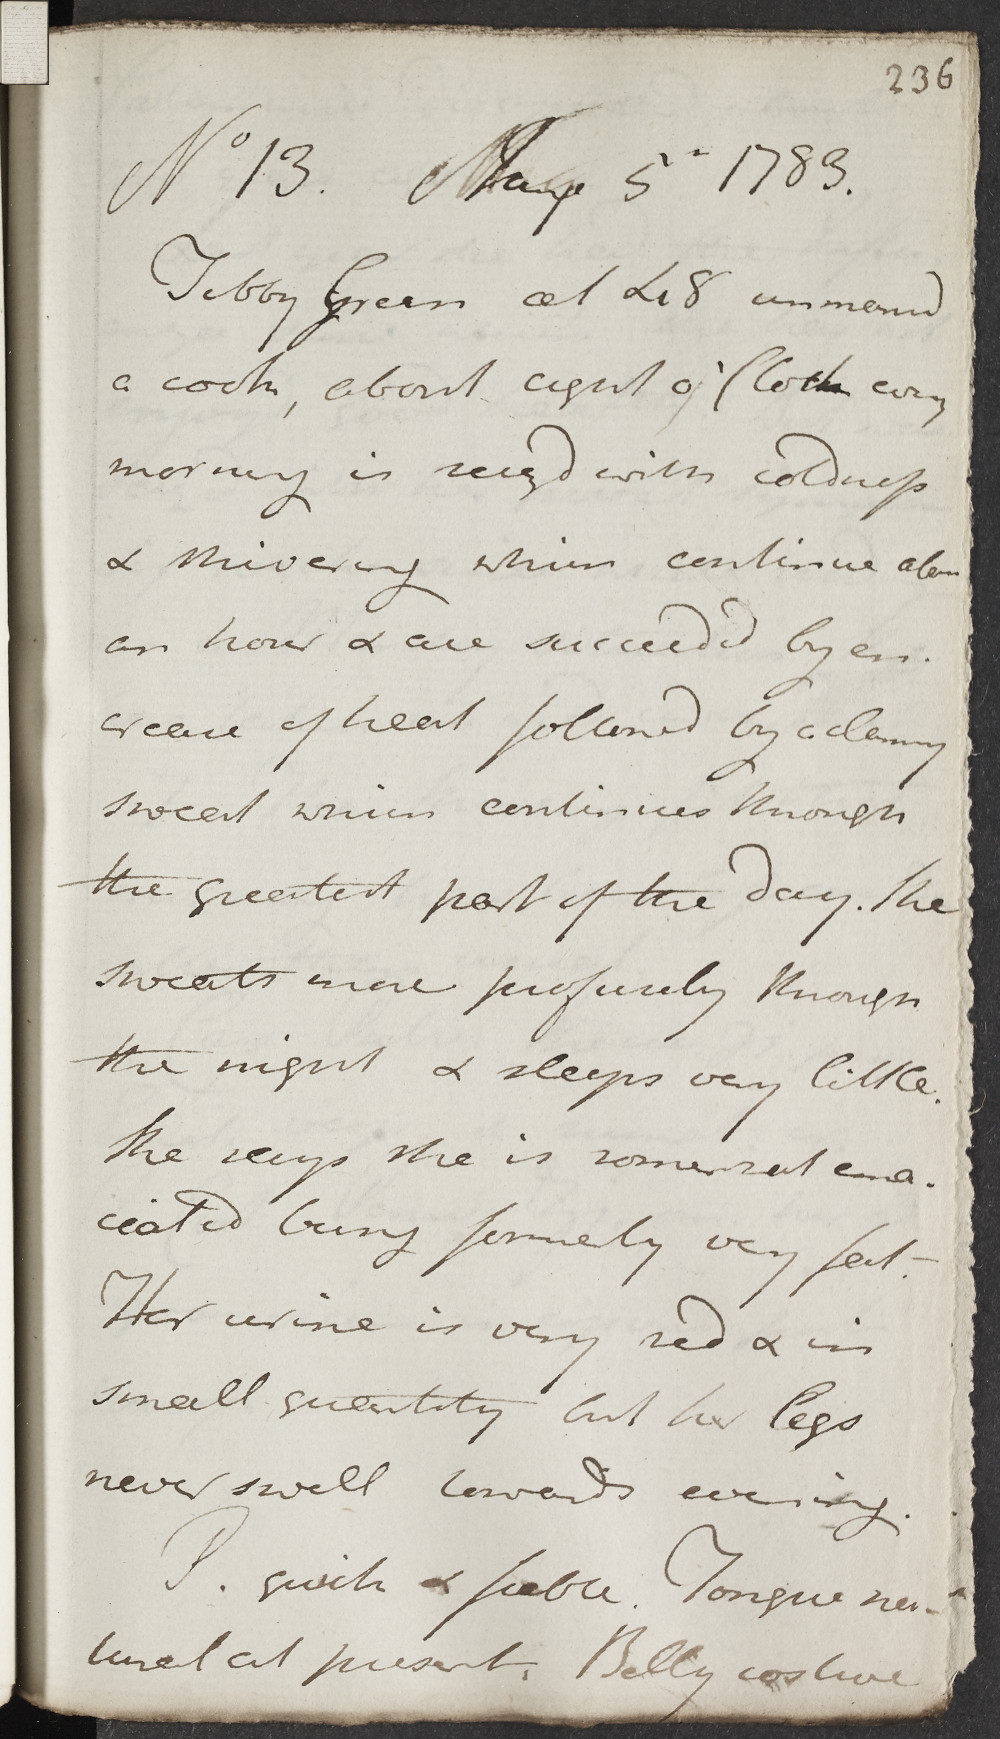 236
No 13. May 5 1783.
Tibby Green æt 48 unmarried
a cook, about eight o'Clock every
morning is seiz'd with coldness
& shivering which continue about
an hour & are succeeded by en-
crease of heat followed by a clammy
sweat which continues through
the greatest part of the day. She
sweats more profusely through
the night & sleeps very little.
She says she is somewhat ema-
ciated being formerly very fat.
Her urine is very red & in
small quantity but her legs
never swell towards evening.
P. quick & feeble. Tongue na-
tural at present. Belly costive